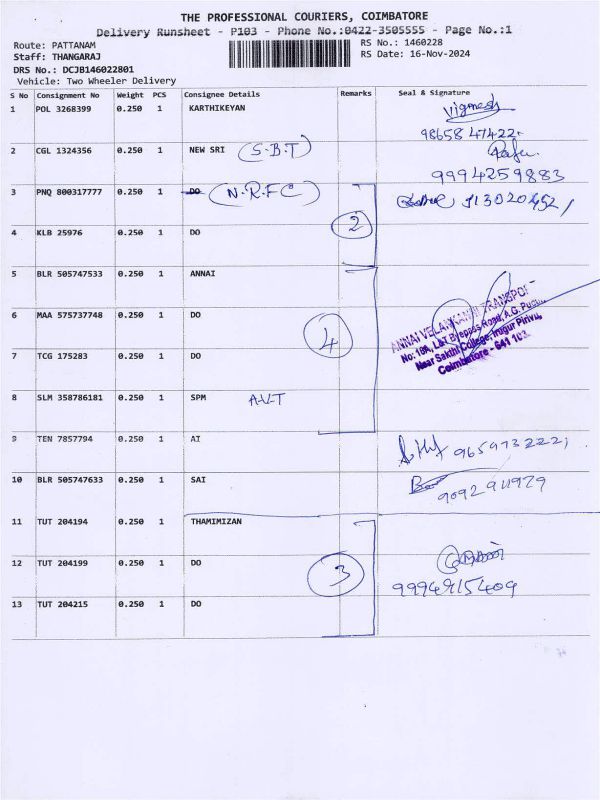 THE PROFESSIONAL COURIERS, COIMBATORE
Delivery Runsheet - P103 - Phone No.:0422-3505555 - Page No.:1
Route: PATTANAM RS No.: 1460228
Staff: THANGARAJ RS Date: 16-Nov-2024
DRS No.: DCJB146022801
Vehicle: Two Wheeler Delivery
S No Consignment No Weight PCS Consignee Details Remarks Seal & Signature
1 POL 3268399 0.250 1 KARTHIKEYAN Vignesh
98658 47422
2 CGL 1324356 0.250 1 NEW SRI (S.B.T)
9994259883
3 PNQ 800317777 0.250 1 DO (N.R.F.C)
2
4 KLB 25976 0.250 1 DO
5 BLR 505747533 0.250 1 ANNAI
6 MAA 575737748 0.250 1 DO
4
ANNAI VELANKANNI TRANSPORT
No: 18A, L&T Byepass Road, A.G. Pudur,
Near Sakthi College, Irugur Pirivu,
Coimbatore - 641 103.
7 TCG 175283 0.250 1 DO
8 SLM 358786181 0.250 1 SPM A.V.T
9 TEN 7857794 0.250 1 AI
10 BLR 505747633 0.250 1 SAI
11 TUT 204194 0.250 1 THAMIMIZAN
12 TUT 204199 0.250 1 DO
3
13 TUT 204215 0.250 1 DO